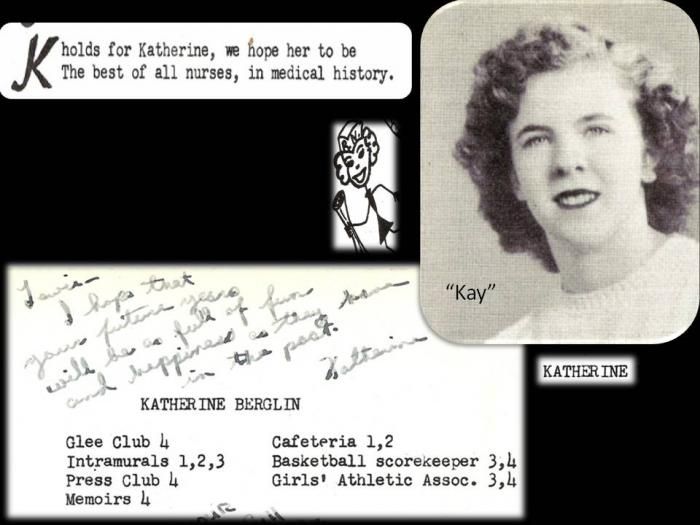 K holds for Katherine, we hope her to be
The best of all nurses, in medical history.
"Kay"
KATHERINE
I hope that
your future years
will be as full of fun
and happiness as they have
in the past.
Katherine
KATHERINE BERGLIN
Glee Club 4
Cafeteria 1,2
Intramurals 1,2,3
Basketball scorekeeper 3,4
Press Club 4
Girls' Athletic Assoc. 3,4
Memoirs 4